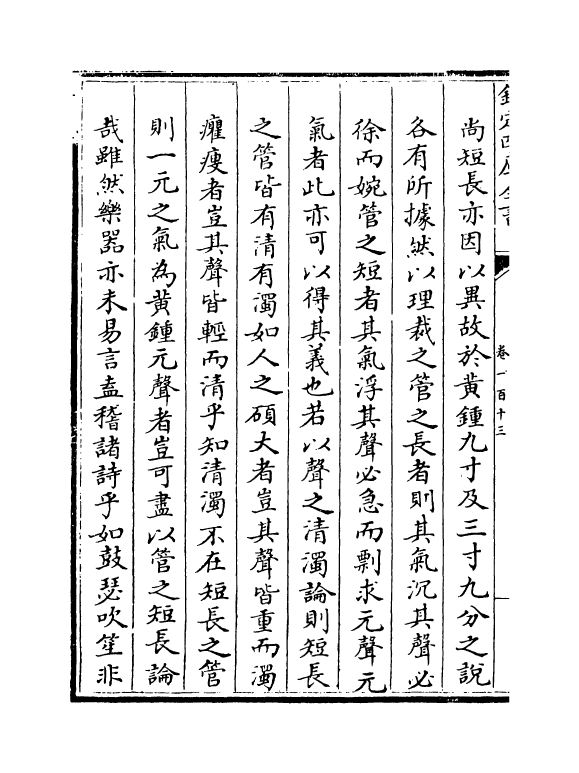 欽定四庫全書
卷一百十三
尚短長亦因以異故於黃鍾九寸及三寸九分之說
各有所據然以理裁之管之長者則其氣沉其聲必
徐而婉管之短者其氣浮其聲必急而剽求元聲元
氣者此亦可以得其義也若以聲之清濁論則短長
之管皆有清有濁如人之碩大者豈其聲皆重而濁
癯瘦者豈其聲皆輕而清乎知清濁不在短長之管
則一元之氣為黃鍾元聲者豈可盡以管之短長論
哉雖然樂器亦未易言盍稽諸詩乎如鼓瑟吹笙非